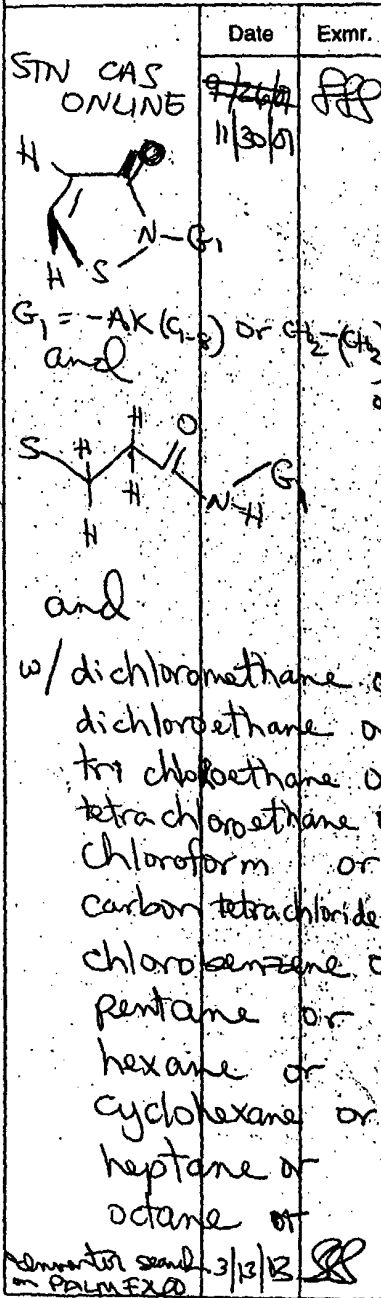 Date Exmr.
STN CAS
ONLINE
11/30/01
H
N-G1
H S
G1 = -AK(C1-8) or CH2-(CH2)
and
O
S H H G1
N-H
H H
and
w/ dichloromethane
dichloroethane
tri chloroethane
tetrachloroethane
chloroform or
carbon tetrachloride
chlorobenzene
pentane or
hexane or
cyclohexane or
heptane or
octane or
search 3/13/
on PALM EXPO